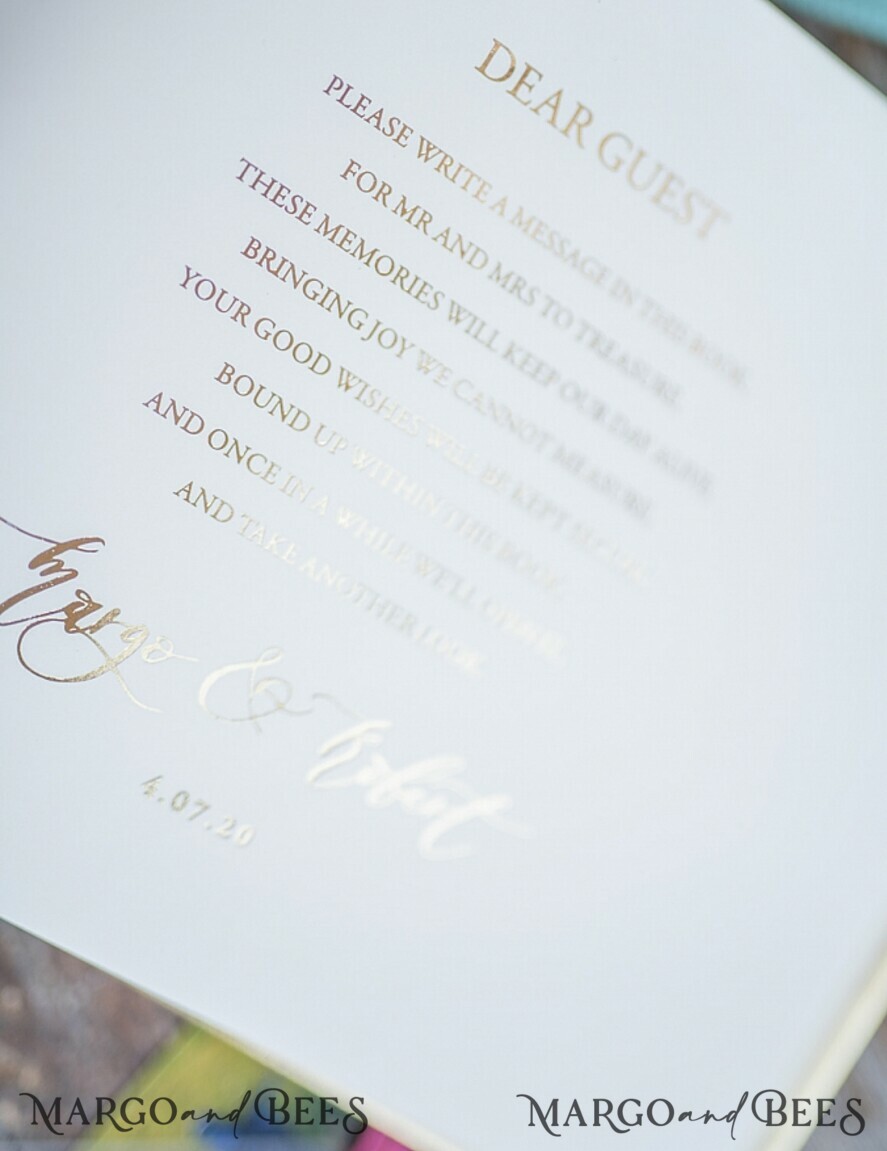 DEAR GUEST
PLEASE WRITE A MESSAGE IN THIS BOOK,
FOR MR AND MRS TO TREASURE.
THESE MEMORIES WILL KEEP OUR DAY ALIVE,
BRINGING JOY WE CANNOT MEASURE.
YOUR GOOD WISHES WILL BE KEPT
BOUND UP WITHIN THIS BOOK.
AND ONCE IN A WHILE WE'LL
AND TAKE ANOTHER LOOK.
Margo & Robert
4.07.20
MARGO and BEES MARGO and BEES